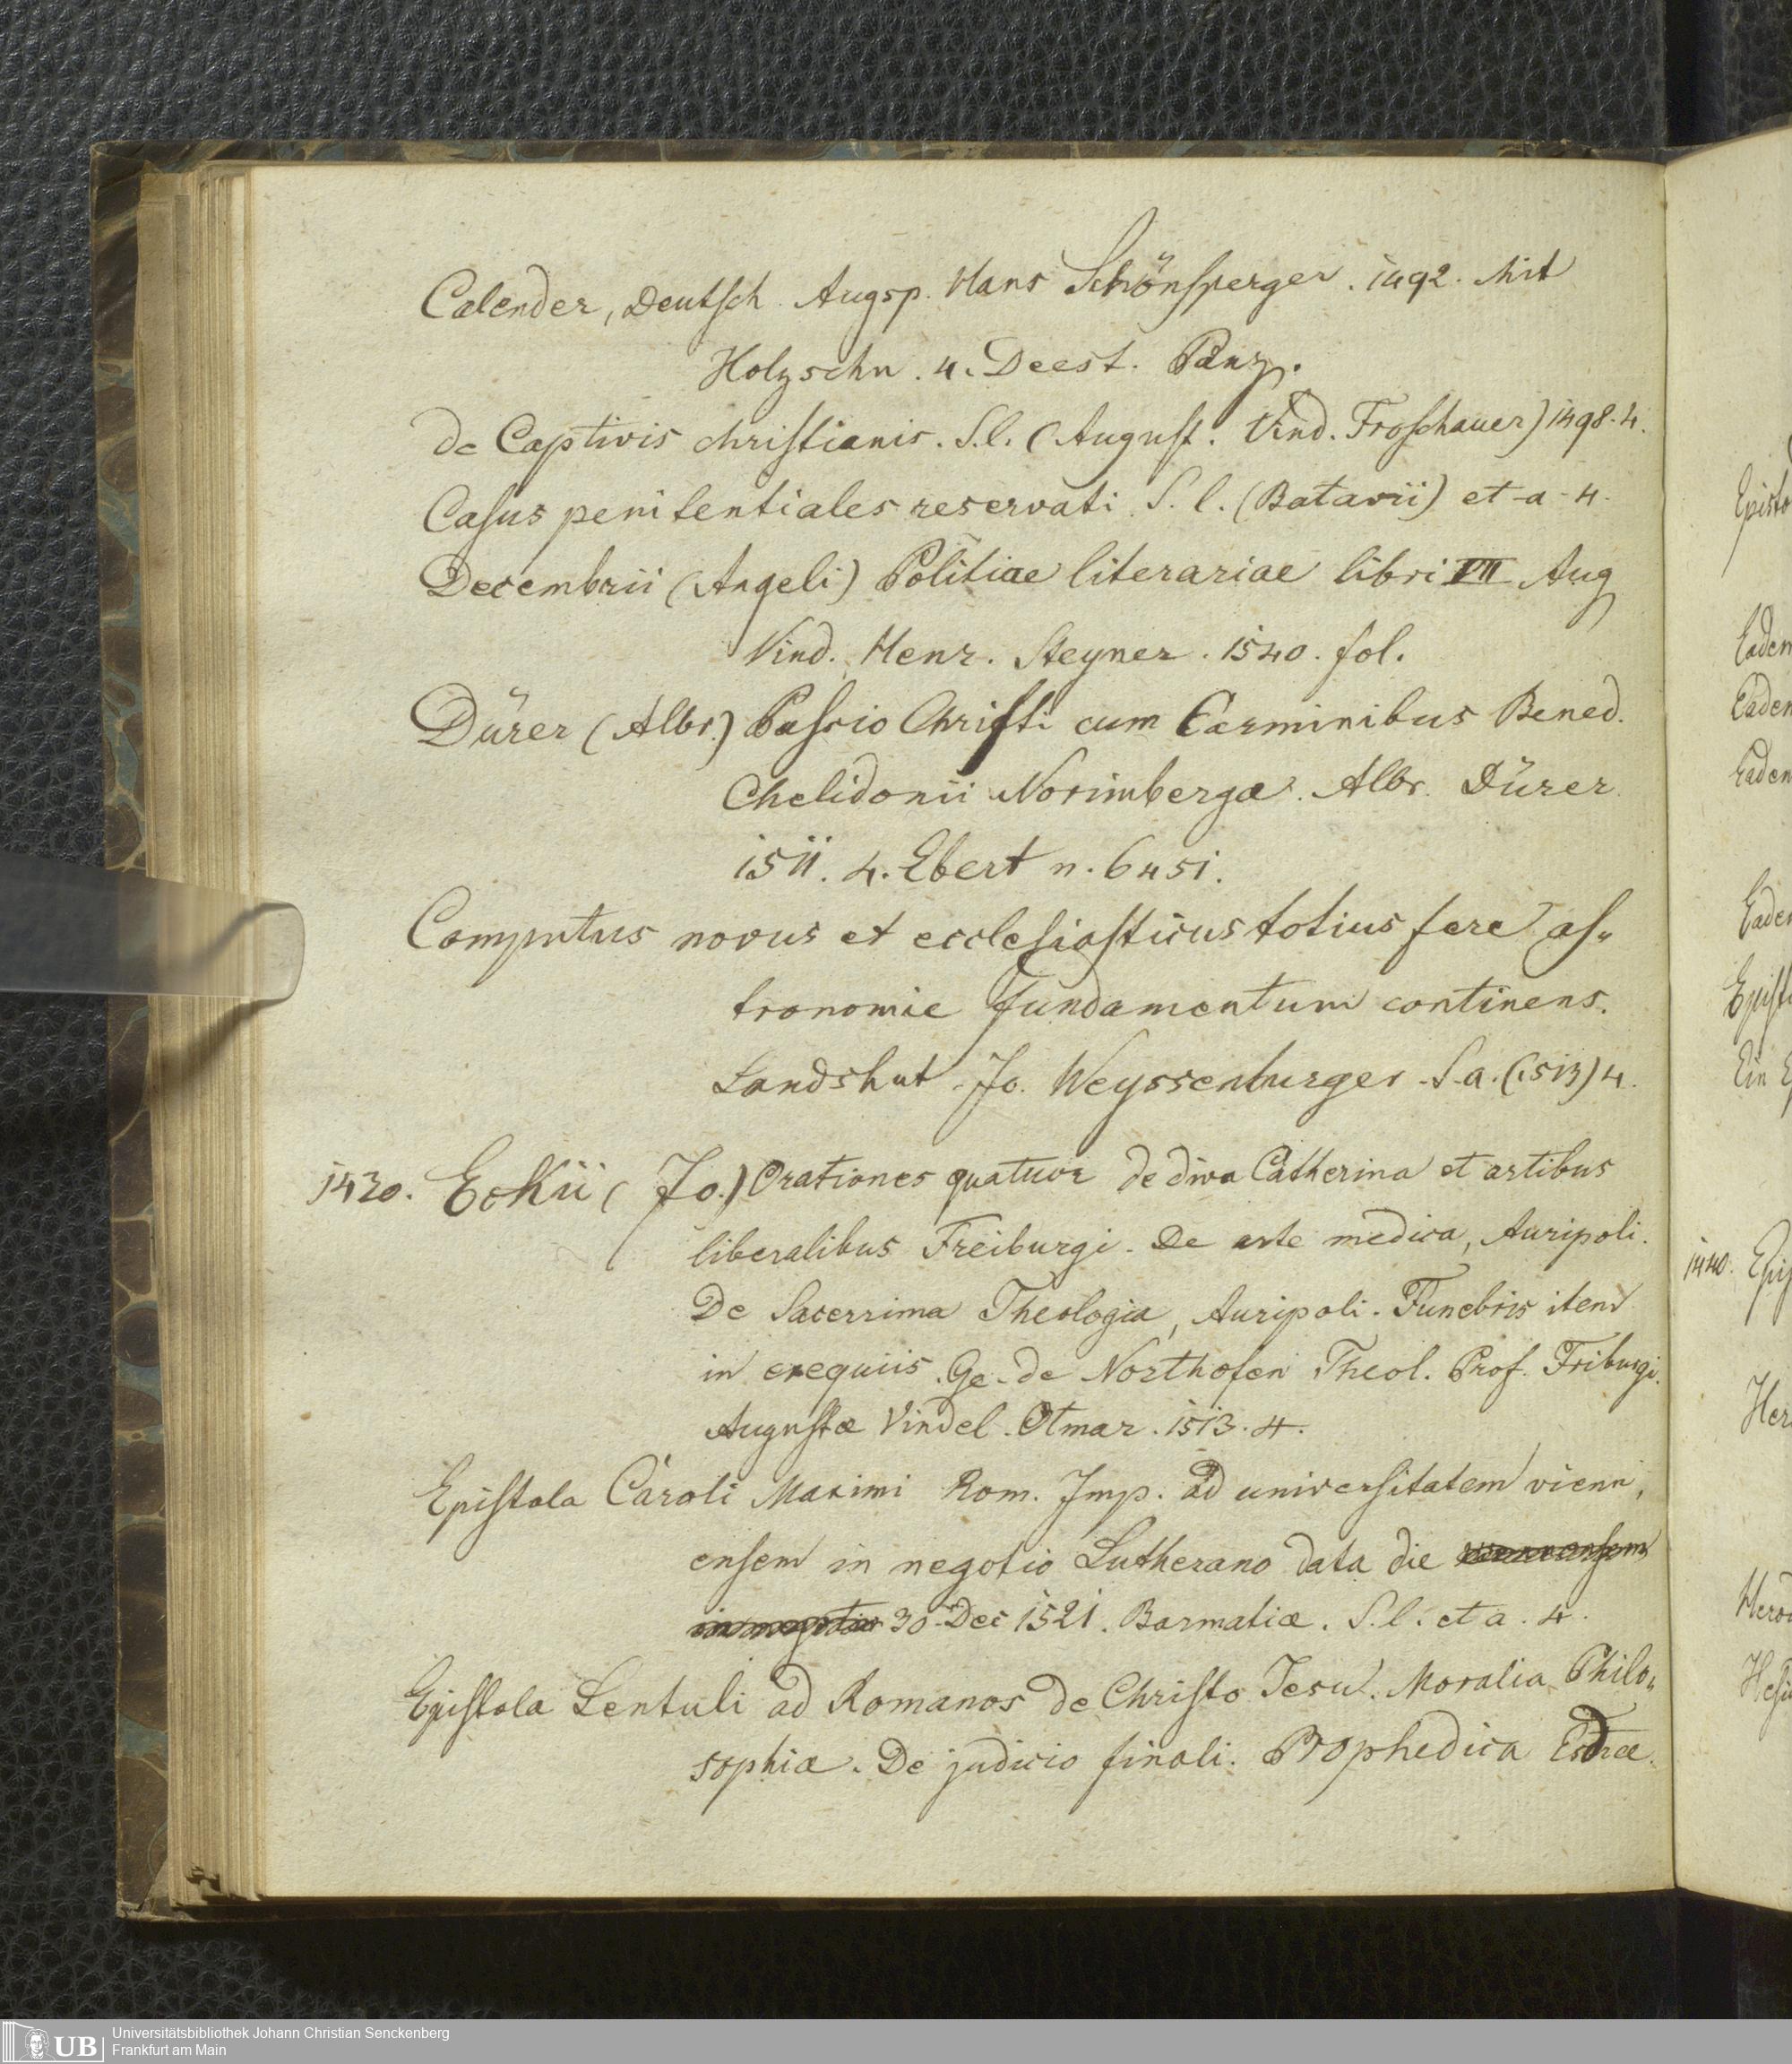 Calender, Deutsch. Augsp. Hans Schönsperger. 1492. Mit
Holzschn. 4. Deest. Panz.
de Captivis christianis. S. l. (August. Vind. Froschauer) 1498. 4.
Casus penitentiales reservati S. l. (Batavii) et a - 4.
Decembrii (Angeli) Politiae literariae libri VII Aug
Vind. Henr. Steyner. 1540. fol.
Dürer (Albr.) Passio Christi cum Carminibus Bened.
Chelidonii Norimbergæ. Albr. Dürer.
1511. 4. Ebert n. 6451.
Computus novus et ecclesiasticus totius fere as„
tronomie fundamentum continens.
Landshut. Jo. Weyssenburger. S. a. (1513) 4.
1430. Eckii (Jo.) Orationes quatuor de diva Catherina et artibus
liberalibus Freiburgi. De arte medica, Auripoli.
De Sacerrima Theologia, Auripoli. Funebris item
in exequiis. Ge. de Northofen Theol. Prof. Friburgi.
Augustæ Vindel. Otmar. 1513. 4.
Epistola Caroli Maximi Rom. Imp. ad universitatem vienn,
ensem in negotio Lutherano data die viennensem
in negotio 30. Dec 1521. Barmatiæ. S. l. et a. 4.
Epistola Lentuli ad Romanos de Christo Jesu. Moralia Philo„
sophiæ. De judicio finali. Prophedica Esdræ.
Episto
Eadem
Eadem
Eadem
Ein
1440. Epis
Her
Herod
Hesi
Universitätsbibliothek Johann Christian Senckenberg
UB Frankfurt am Main